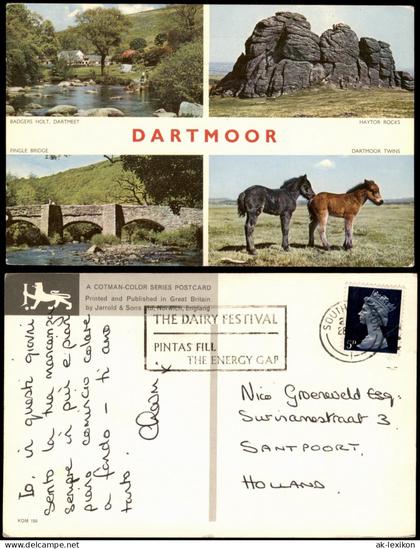 BADGERS HOLT, DARTMEET
HAYTOR ROCKS
DARTMOOR
FINGLE BRIDGE
DARTMOOR TWINS
A COTMAN-COLOR SERIES POSTCARD
Printed and Published in Great Britain
by Jarrold & Sons Ltd, Norwich, England
THE DAIRY FESTIVAL
PINTAS FILL
THE ENERGY GAP
SOUTH
5D
Io, in questi giorni
sento la tua mancanza
sempre in più e più
piano comincio
a farlo - ti amo
tanto.
Nico Groeneveld Esq.
Surinamestraat 3
SANTPOORT
HOLLAND
KDM 150
© ak-lexikon
www.ak-lexikon.de